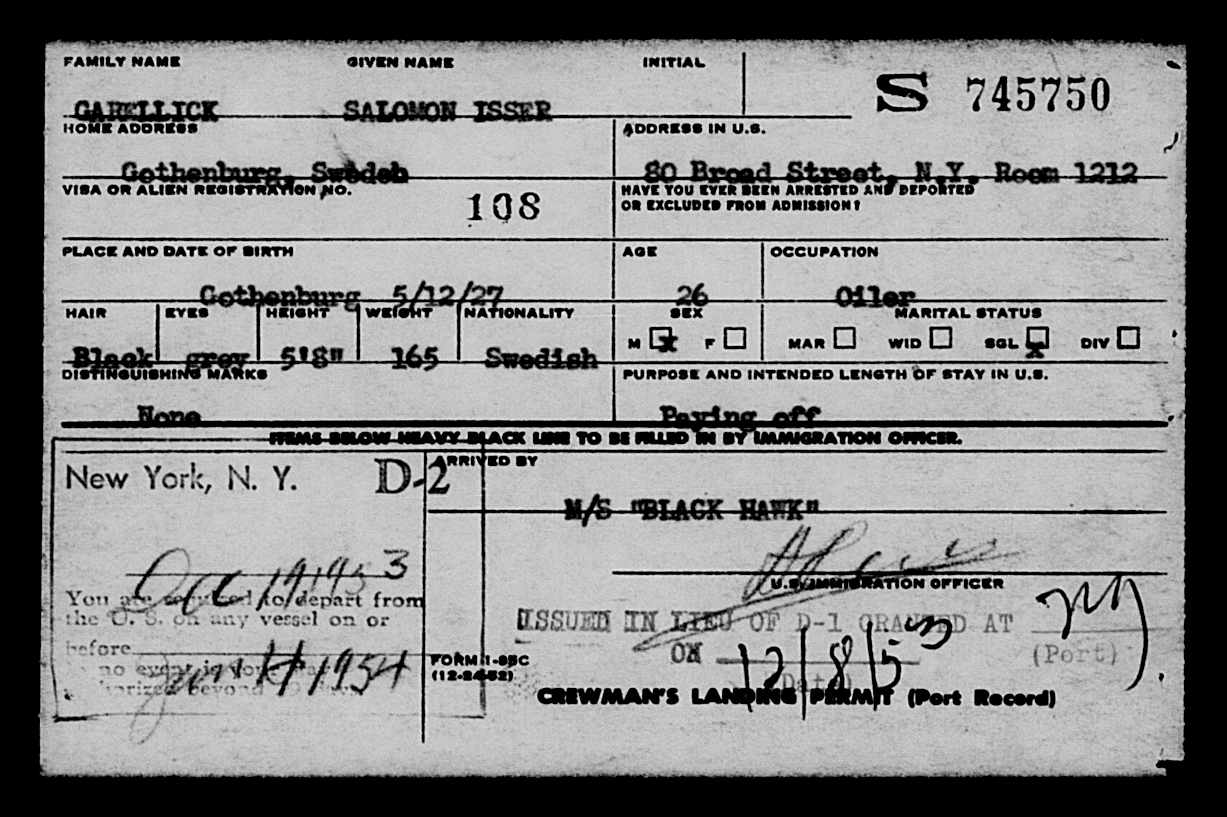 FAMILY NAME GIVEN NAME INITIAL
S 745750
GARELLICK SALOMON ISSER
HOME ADDRESS ADDRESS IN U.S.
Gothenburg, Swedeh 80 Broad Street, N.Y. Room 1212
VISA OR ALIEN REGISTRATION NO. HAVE YOU EVER BEEN ARRESTED AND DEPORTED
OR EXCLUDED FROM ADMISSION?
108
PLACE AND DATE OF BIRTH AGE OCCUPATION
Gothenburg 5/12/27 26 Oiler
HAIR EYES HEIGHT WEIGHT NATIONALITY SEX MARITAL STATUS
M x F MAR WID SGL x DIV
Black grey 5'8" 165 Swedish
DISTINGUISHING MARKS PURPOSE AND INTENDED LENGTH OF STAY IN U.S.
None Paying off
ITEMS BELOW HEAVY BLACK LINE TO BE FILLED IN BY IMMIGRATION OFFICER.
New York, N. Y. D-2 ARRIVED BY
M/S "BLACK HAWK"
U.S. IMMIGRATION OFFICER
You are required to depart from
the U. S. on any vessel on or
before
no event is
beyond
1954
ISSUED IN LIEU OF D-1 GRANTED AT NY
(Port)
ON 12/8/53
(Date)
FORM I-95C
(12-24-52)
CREWMAN'S LANDING PERMIT (Port Record)